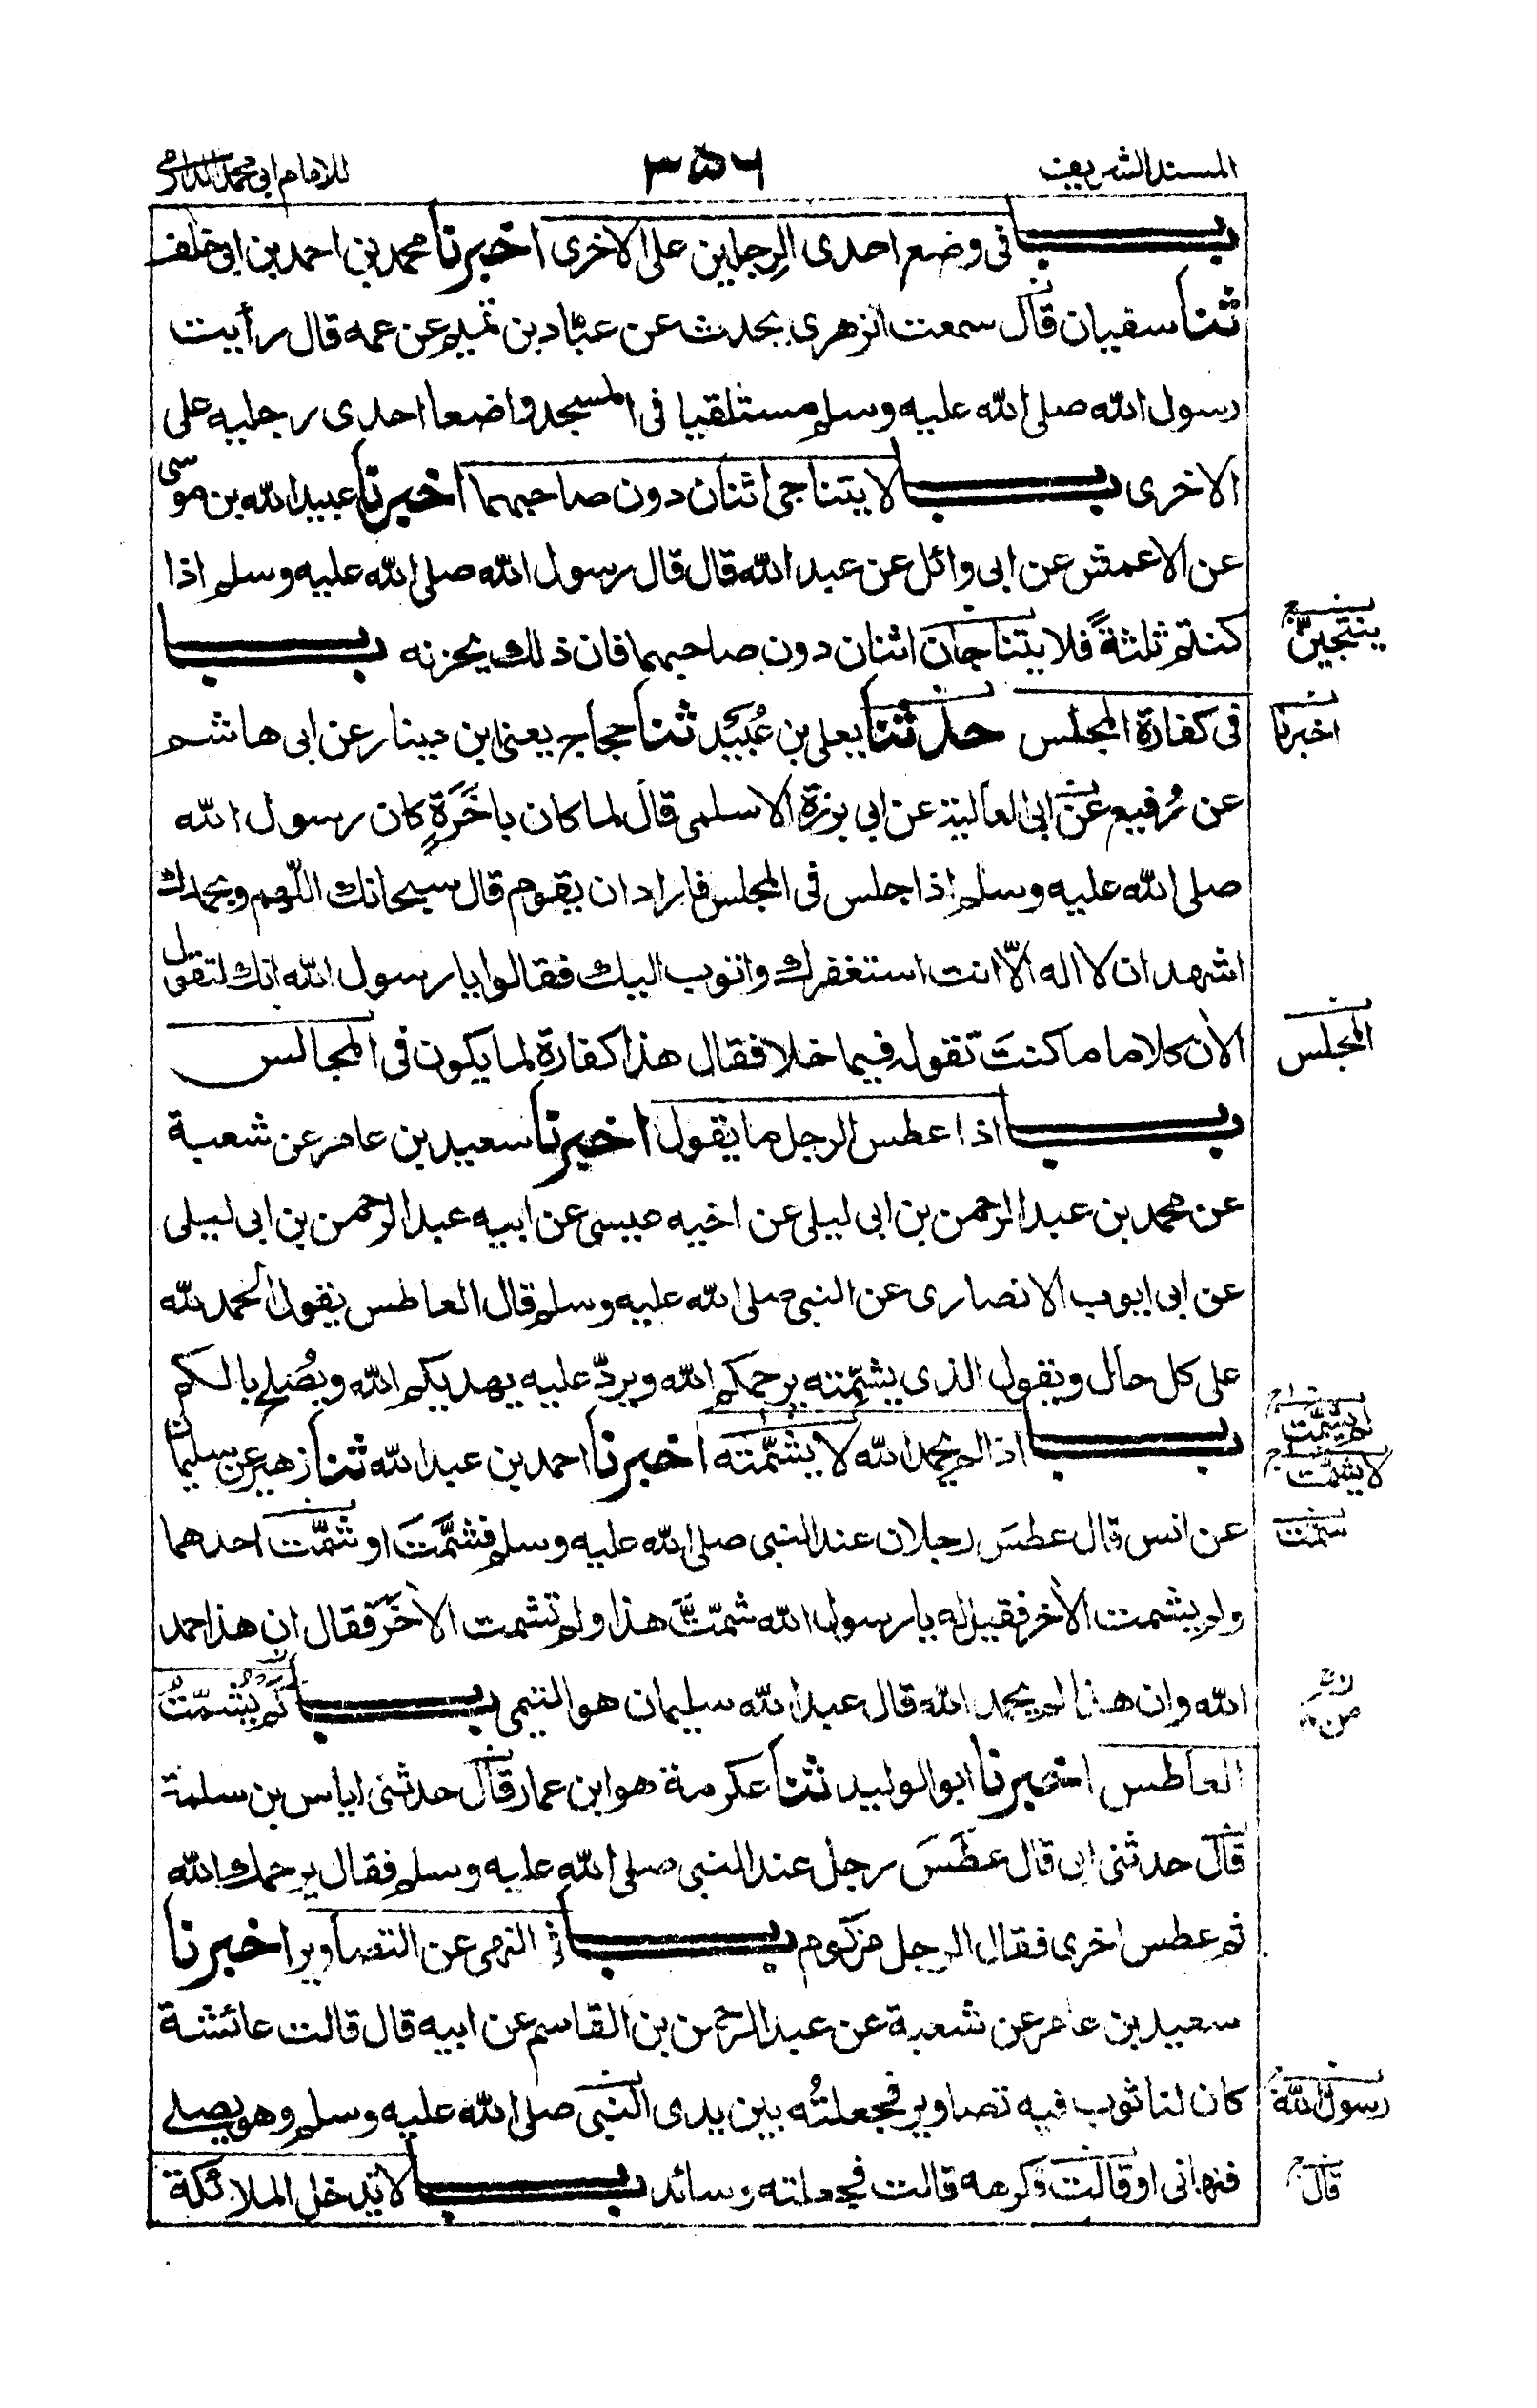 المسند الشريف
٣٥٦
للامام ابى محمد الدارمى
باب فى وضع احدى الرجلين على الاخرى اخبرنا محمد بن احمد بن ابى خلف
ثنا سفيان قال سمعت الزهرى يحدث عن عباد بن تميم عن عمه قال رأيت
رسول الله صلى الله عليه وسلم مستلقيا فى المسجد واضعا احدى رجليه على
الاخرى باب لا يتناجى اثنان دون صاحبهما اخبرنا عبيد الله بن موسى
عن الاعمش عن ابى وائل عن عبد الله قال قال رسول الله صلى الله عليه وسلم اذا
كنتم ثلثةً فلا يتناجان اثنان دون صاحبهما فان ذلك يحزنه باب
ينتجينّ
فى كفارة المجلس حدثنا يعلى بن عُبَيْد ثنا حجاج يعنى ابن دينار عن ابى هاشم
اخبرنا
عن رُفيع عن ابى العالية عن ابى برزة الاسلمى قال لما كان باَخَرَةٍ كان رسول الله
صلى الله عليه وسلم اذا جلس فى المجلس فاراد ان يقوم قال سبحانك اللّهم وبحمدك
اشهد ان لا اله الّا انت استغفرك واتوب اليك فقالوا يا رسول الله انك لتقول
الاٰن كلاما ما كنتَ تقوله فيما خلا فقال هذا كفارة لما يكون فى المجالس
المجلس
باب اذا عطس الرجل ما يقول اخبرنا سعيد بن عامر عن شعبة
عن محمد بن عبد الرحمن بن ابى ليلى عن اخيه عيسى عن ابيه عبد الرحمن بن ابى ليلى
عن ابى ايوب الانصارى عن النبى صلى الله عليه وسلم قال العاطس يقول الحمد لله
على كل حال ويقول الذى يشمّته يرحمكم الله ويردّ عليه يهديكم الله ويُصلح بالكم
باب اذا لم يحمد الله لا يشمّته اخبرنا احمد بن عبد الله ثنا زهير عن سليمان
لم يشمّت
لا يشمّت
عن انس قال عطسَ رجلان عند النبى صلى الله عليه وسلم فشمَّتَ او شمّت احدهما
سمّت
ولم يشمت الاٰخر فقيل له يا رسول الله شمّتَّ هذا ولم تشمت الاٰخَرَ فقال ان هذا حمد
الله وان هذا لم يحمد الله قال عبد الله سليمان هو التيمى باب كم يُشمّتُ
من
العاطس اخبرنا ابو الوليد ثنا عكرمة هو ابن عمار قال حدثنى اياس بن سلمة
قال حدثنى ابى قال عطَسَ رجل عند النبى صلى الله عليه وسلم فقال يرحمك الله
ثم عطس اخرى فقال الرجل مزكوم باب فى النهى عن التصاوير اخبرنا
سعيد بن عامر عن شعبة عن عبد الرحمن بن القاسم عن ابيه قال قالت عائشة
كان لنا ثوب فيه تصاوير فجعلتُه بين يدى النبى صلى الله عليه وسلم وهو يصلى
رسول الله
فنهانى او قالت فكرهه قالت فجعلته وسائد باب لا تدخل الملائكة
قال